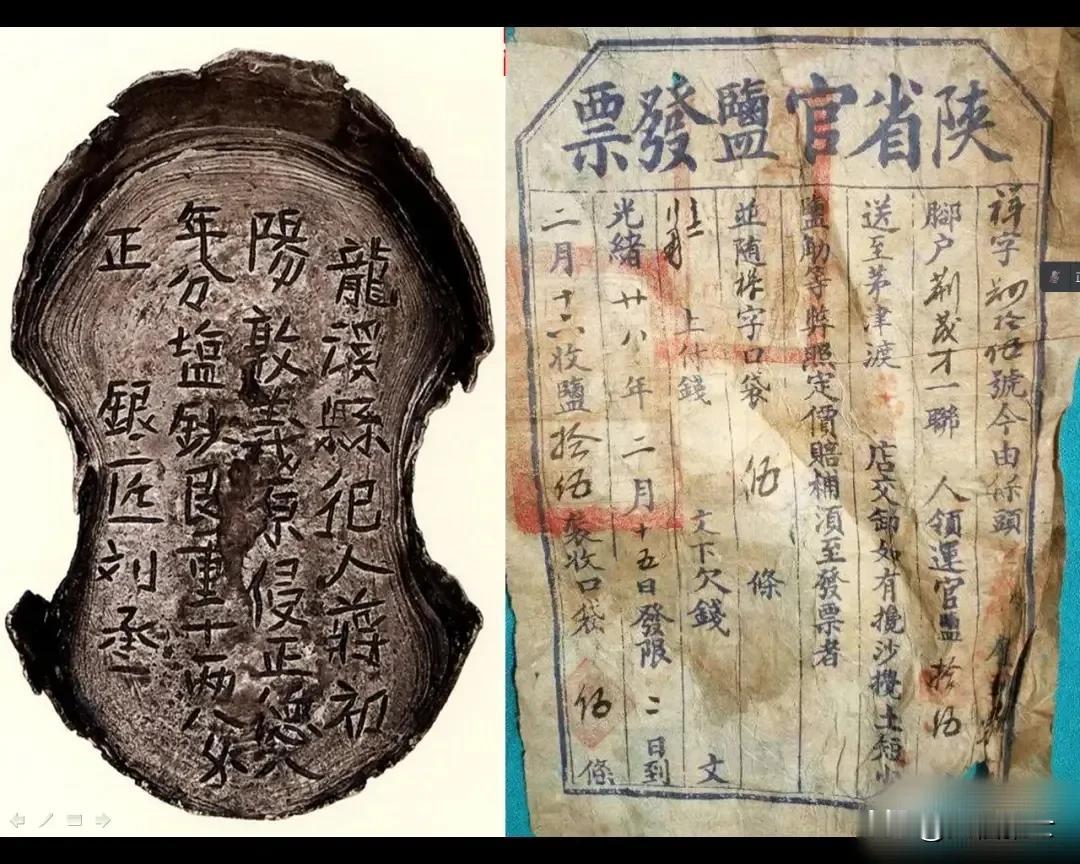 龍溪縣犯人蔣初
陽敦義原侵正德
年分塩鈔良重十两八
正 銀匠刘丞
陝省官鹽發票
祥字 拾伍號今由 頭
脚户荊茂才一聯 人領運官鹽 拾伍
送至茅津渡 店交卸如有攙沙攙土短少
鹽觔等弊照定價賠補須至發票者
並随祥字口袋 伍 條
上付錢 文下欠錢 文
光緒廿八年二月十五日發限二日到
二月十六收鹽拾伍袋收口袋 伍 條